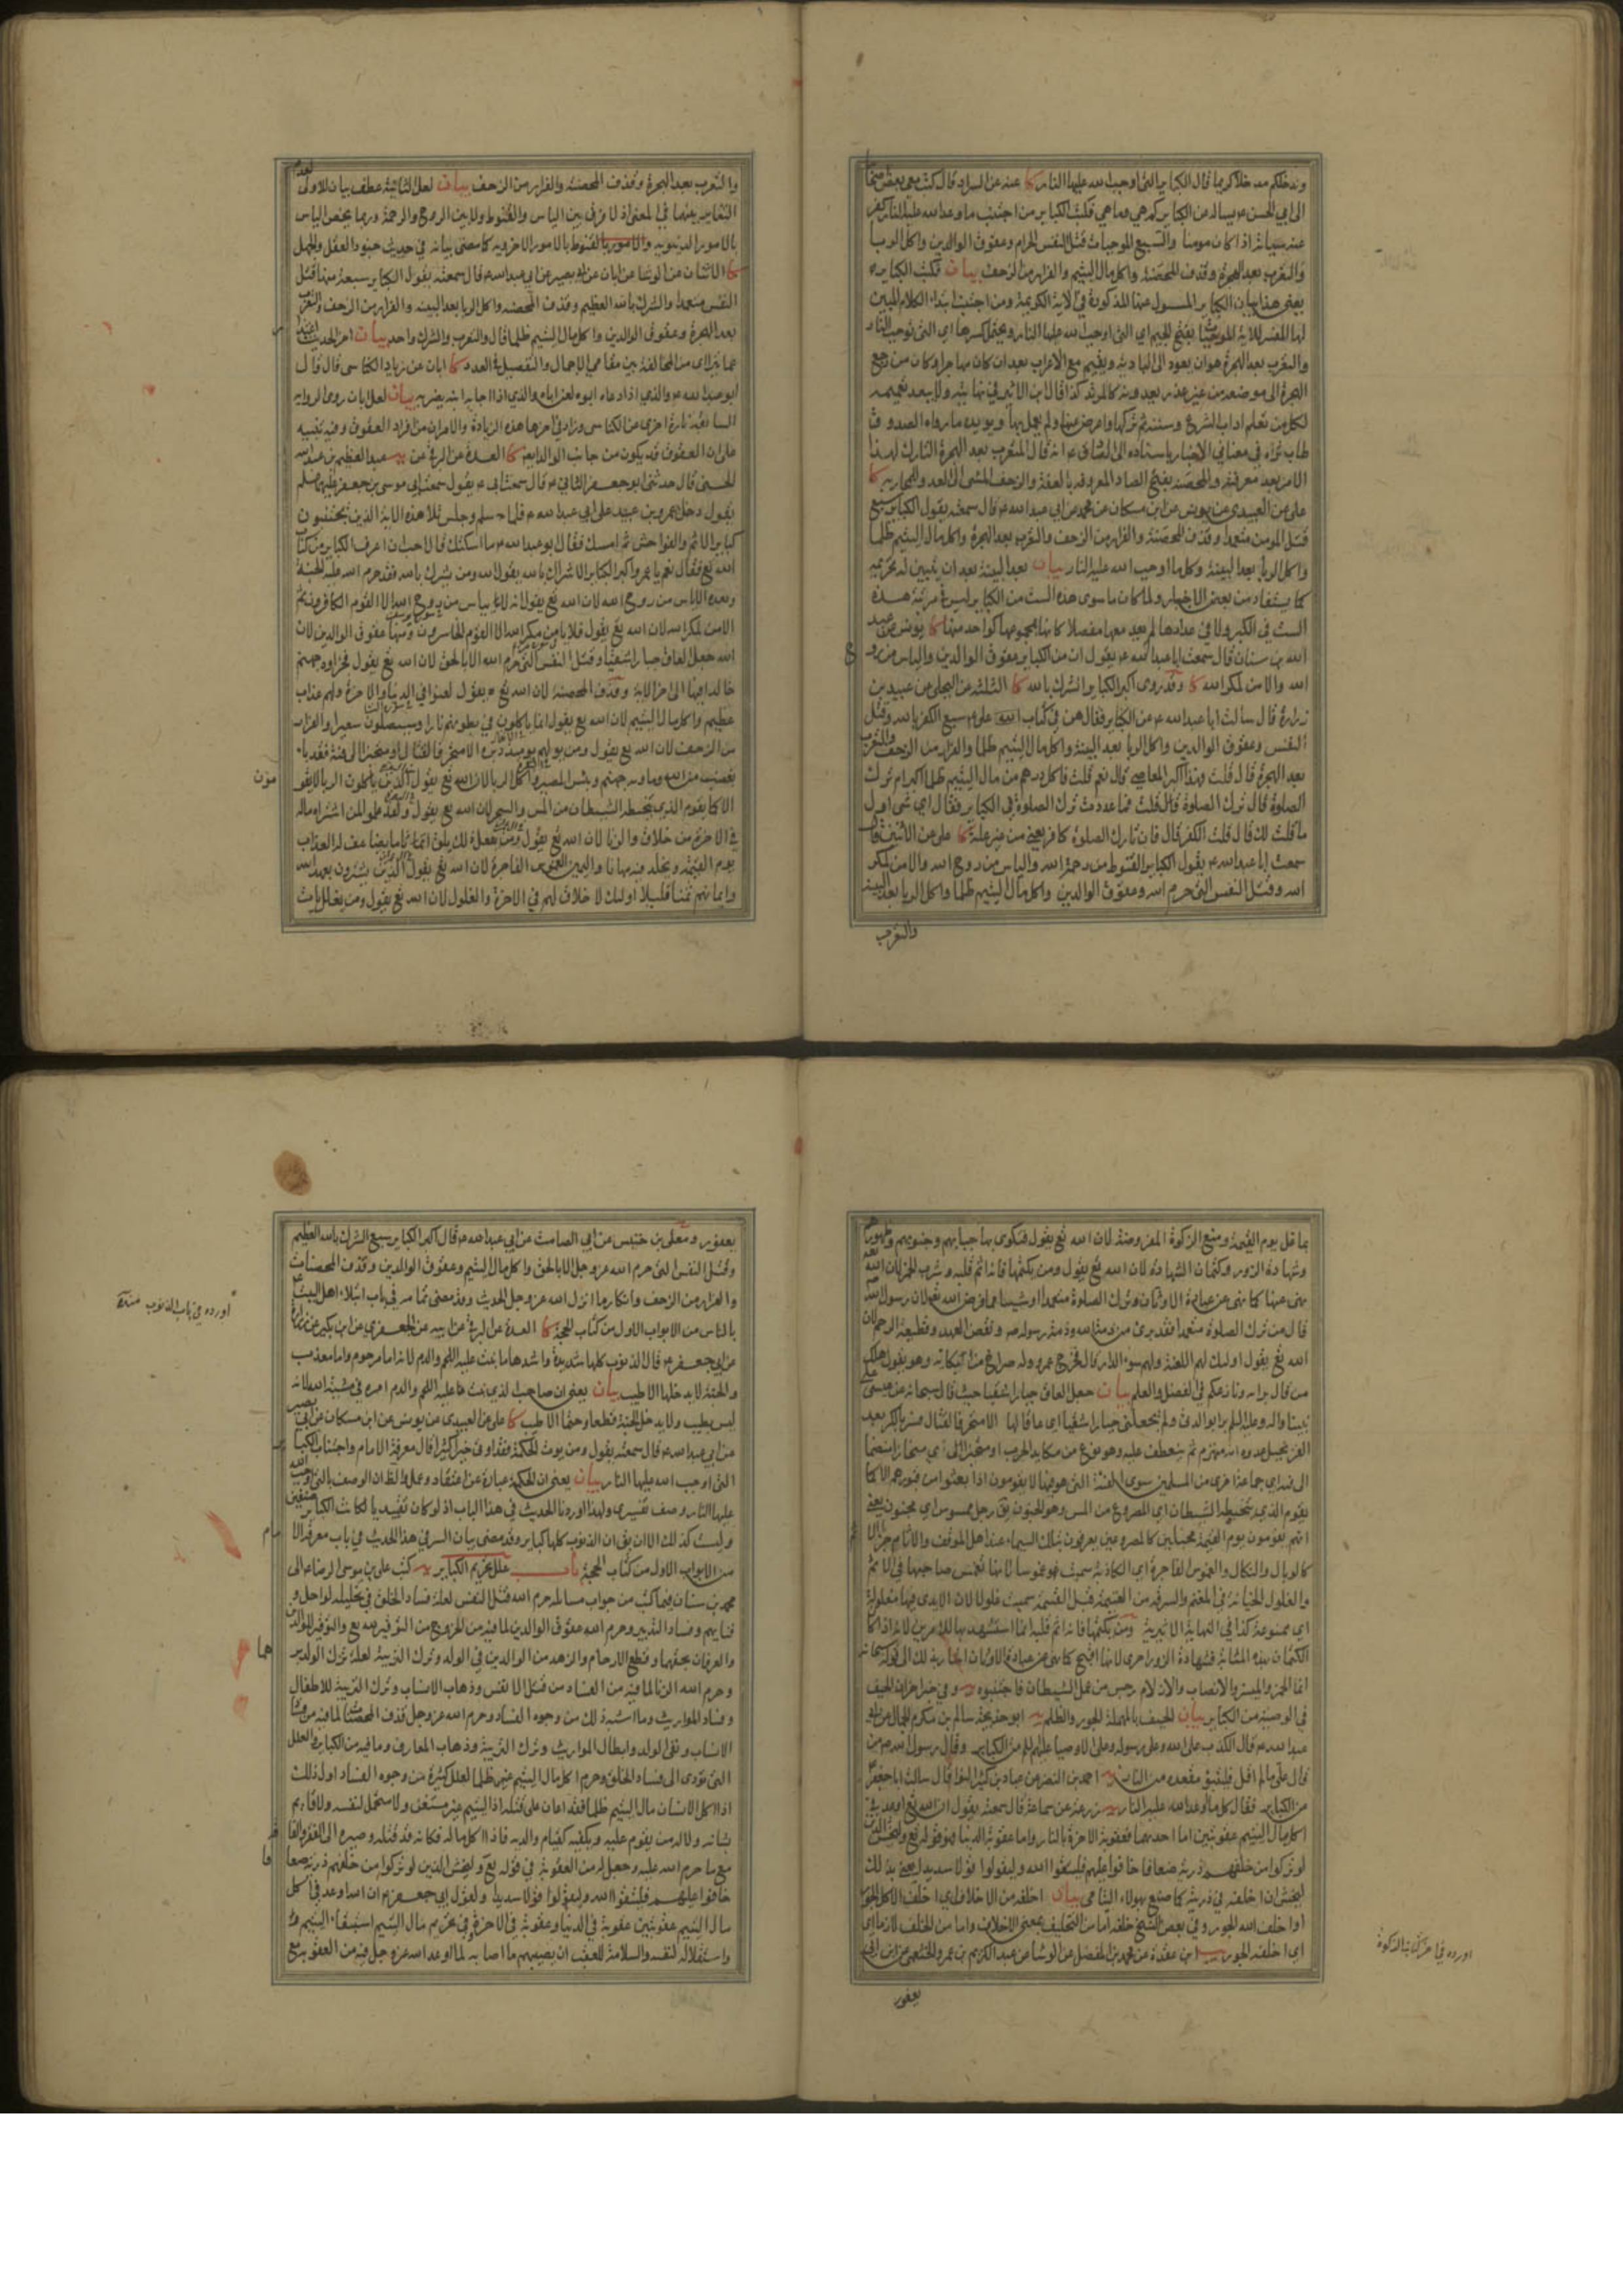 وندخلكم مدخلا كريما قال الكباير التي اوجب الله عليها النار كا عنه عن السراد قال كتب معي بعض اصحابنا
الى ابي الحسن ع يساله عن الكباير كم هي وما هي فكتب الكباير من اجتنب ما وعد الله عليه النار كفر
عنه سيئاته اذا كان مومنا والسبع الموجبات قتل النفس الحرام وعقوق الوالدين واكل الربا
والتعرب بعد الهجرة وقذف المحصنة واكل مال اليتيم والفرار من الزحف بيان فكتب الكباير
يعني هذا بيان الكباير المسول عنها المذكورة في الاية الكريمة ومن اجتنب ابتداء الكلام المبين
لها المفسر للاية الموجبات بفتح الجيم اي التي اوجب الله عليها النار ويحتمل كسرها اي التي توجب النار
والتعرب بعد الهجرة هو ان يعود الى البادية ويقيم مع الاعراب بعد ان كان مهاجرا وكان من رجع بعد
الهجرة الى موضعه من غير عذر يعدونه كالمرتد كذا قال ابن الاثير في نهايته ولا يبعد تعميمه
لكل من تعلم اداب الشرع وسننه ثم تركها واعرض عنها ولم يعمل بها ويويده ما رواه الصدوق
طاب ثراه في معاني الاخبار باسناده الى الصادق ع انه قال المتعرب بعد الهجرة التارك لهذا
الامر بعد معرفته والمحصنة بفتح الصاد المعروفة بالعفة والزحف المشي الى العدو للمحاربة كا
علي عن العبيدي عن يونس عن ابن مسكان عن محمد عن ابي عبد الله ع قال سمعته يقول الكباير سبع
قتل المومن متعمدا وقذف المحصنة والفرار من الزحف والتعرب بعد الهجرة واكل مال اليتيم ظلما
واكل الربا بعد البينة وكلما اوجب الله عليه النار بيان بعد البينة بعد ان يتبين له تحريمه
كما يستفاد من بعض الاخبار ولما كان ما سوى هذه الست من الكباير ليس في مرتبة هذه
الست في الكبر ولا في عدادها لم يعد معها مفصلا كانها بمجموعها كواحد منها كا يونس عن عبد
الله بن سنان قال سمعت ابا عبد الله ع يقول ان من الكباير عقوق الوالدين والياس من روح
الله والامن لمكر الله كا وقد روي اكبر الكباير الشرك بالله كا الثلثة عن البجلي عن عبيد بن
زرارة قال سالت ابا عبد الله ع عن الكباير فقال هن في كتاب علي ع سبع الكفر بالله وقتل
النفس وعقوق الوالدين واكل الربا بعد البينة واكل مال اليتيم ظلما والفرار من الزحف والتعرب
بعد الهجرة قال قلت فهذا اكبر المعاصي قال نعم قلت فاكل درهم من مال اليتيم ظلما اكبر ام ترك
الصلوة قال ترك الصلوة قال قلت فما عددت ترك الصلوة في الكباير فقال اي شي اول
ما قلت لك قال قلت الكفر قال فان تارك الصلوة كافر يعني من غير علة كا علي عن الاثنين قال
سمعت ابا عبد الله ع يقول الكباير القنوط من رحمة الله والياس من روح الله والامن لمكر
الله وقتل النفس التي حرم الله وعقوق الوالدين واكل مال اليتيم ظلما واكل الربا بعد البينة
والتعرب
والتعرب بعد الهجرة وقذف المحصنة والفرار من الزحف بيان لعل الثانية عطف بيان للاولى لعدم
التغاير بينهما في المعنى اذ لا فرق بين الياس والقنوط ولا بين الروح والرحمة وربما يخص الياس
بالامور الدنيوية والقنوط بالامور الاخروية كما مضى بيانه في حديث جنود العقل والجهل
كا الاثنان عن الوشا عن ابان عن ابي بصير عن ابي عبد الله ع قال سمعته يقول الكباير سبعة منها قتل
النفس متعمدا والشرك بالله العظيم وقذف المحصنة واكل الربا بعد البينة والفرار من الزحف والتعرب
بعد الهجرة وعقوق الوالدين واكل مال اليتيم ظلما قال والتعرب والشرك واحد بيان اخر الحديث اعتذار
عما يترااى من المخالفة بين مقامي الاجمال والتفصيل في العدد كا ابان عن زياد الكناسي قال قال
ابو عبد الله ع والذي اذا دعاه ابوه لعن اباه والذي اذا اجابه ابنه يضربه بيان لعل ابان روى الرواية
السابقة تارة اخرى عن الكناسي وزاد في اخرها هذه الزيادة والامران من افراد العقوق وفيه تنبيه
على ان العقوق قد يكون من جانب الوالد ايضا كا العدة عن البرقي عن يه عبد العظيم بن عبد الله
الحسني قال حدثني ابو جعفر الثاني ع قال سمعت ابي ع يقول سمعت ابي موسى بن جعفر عليهما السلم
يقول دخل عمرو بن عبيد على ابي عبد الله ع فلما سلم وجلس تلا هذه الاية الذين يجتنبون
كباير الاثم والفواحش ثم امسك فقال ابو عبد الله ع ما اسكتك قال احب ان اعرف الكباير من كتاب
الله تع فقال نعم يا عمرو اكبر الكباير الاشراك بالله يقول الله ومن يشرك بالله فقد حرم الله عليه الجنة
وبعده الاياس من روح الله لان الله تع يقول انه لا يياس من روح الله الا القوم الكافرون ثم
الامن لمكر الله لان الله تع يقول فلا يامن مكر الله الا القوم الخاسرون ومنها عقوق الوالدين لان
الله جعل العاق جبارا شقيا وقتل النفس التي حرم الله الا بالحق لان الله تع يقول فجزاوه جهنم
خالدا فيها الى اخر الاية وقذف المحصنة لان الله تع يقول لعنوا في الدنيا والاخرة ولهم عذاب
عظيم واكل مال اليتيم لان الله تع يقول انما ياكلون في بطونهم نارا وسيصلون سعيرا والفرار
من الزحف لان الله تع يقول ومن يولهم يومئذ دبره الا متحرفا لقتال او متحيزا الى فئة فقد باء
بغضب من الله وماويه جهنم وبئس المصير واكل الربا لان الله تع يقول الذين ياكلون الربا لا يقومون
الا كما يقوم الذي يتخبطه الشيطان من المس والسحر لان الله تع يقول ولقد علموا لمن اشتراه ماله
في الاخرة من خلاق والزنا لان الله تع يقول ومن يفعل ذلك يلق اثاما يضاعف له العذاب
يوم القيمة ويخلد فيه مهانا واليمين الغموس الفاجرة لان الله تع يقول الذين يشترون بعهد الله
وايمانهم ثمنا قليلا اولئك لا خلاق لهم في الاخرة والغلول لان الله تع يقول ومن يغلل يات
بما غل يوم القيمة ومنع الزكوة المفروضة لان الله تع يقول فتكوى بها جباههم وجنوبهم وظهورهم
وشهادة الزور وكتمان الشهادة لان الله تع يقول ومن يكتمها فانه اثم قلبه وشرب الخمر لان الله تع
نهى عنها كما نهى عن عبادة الاوثان وترك الصلوة متعمدا او شيئا مما فرض الله تع لان رسول الله ص
قال من ترك الصلوة متعمدا فقد برئ من ذمة الله وذمة رسوله ص ونقض العهد وقطيعة الرحم لان
الله تع يقول اولئك لهم اللعنة ولهم سوء الدار قال فخرج عمرو وله صراخ من بكائه وهو يقول هلك
من قال برايه ونازعكم في الفضل والعلم بيان جعل العاق جبارا شقيا حيث قال سبحانه عن عيسى على
نبينا واله وعليه السلم وبرا بوالدتي ولم يجعلني جبارا شقيا اي عاقا لها الا متحرفا لقتال هو الكر بعد
الفر يخيل عدوه انه منهزم ثم ينعطف عليه وهو نوع من مكايد الحرب او متحيزا الى فئة اي منحازا منضما
الى فئة اي جماعة اخرى من المسلمين سوى الفئة التي هو فيها لا يقومون اذا بعثوا من قبورهم الا كما
يقوم الذي يتخبطه الشيطان اي المصروع من المس وهو الجنون يق رجل ممسوس اي مجنون يعني
انهم يقومون يوم القيمة مخبلين كالمصروعين يعرفون بتلك السيماء عند اهل الموقف والاثام جزاء الاثم
كالوبال والنكال والغموس الفاجرة اي الكاذبة سميت غموسا لانها تغمس صاحبها في الاثم
والغلول الخيانة في المغنم والسرقة من الغنيمة قبل القسمة سميت غلولا لان الايدي فيها مغلولة
اي ممنوعة كذا في النهاية الاثيرية ومن يكتمها فانه اثم قلبه انما استشهد بها للامرين لانه اذا كان
الكتمان بهذه المثابة فشهادة الزور احرى لانها اقبح كما نهى عن عبادة الاوثان اشارة بذلك الى قوله سبحانه
انما الخمر والميسر والانصاب والازلام رجس من عمل الشيطان فاجتنبوه يه وفي خبر اخر ان الحيف
في الوصية من الكباير بيان الحيف بالمهملة الجور والظلم يه ابو خديجة سالم بن مكرم الجمال عن ابي
عبد الله ع قال الكذب على الله وعلى رسوله وعلى الاوصيا عليهم السلم من الكباير وقال رسول الله ص من
قال علي ما لم اقل فليتبوا مقعده من النار يه احمد بن النضر عن عباد بن كثير النوا قال سالت ابا جعفر ع
عن الكباير فقال كل ما اوعد الله عليه النار يه زرعة عن سماعة قال سمعته يقول ان الله تع اوعد في
اكل مال اليتيم عقوبتين اما احديهما فعقوبة الاخرة بالنار واما عقوبة الدنيا فهو قوله تع وليخش الذين
لو تركوا من خلفهم ذرية ضعافا خافوا عليهم فليتقوا الله وليقولوا قولا سديدا يعني بذلك
ليخش ان اخلفه في ذريته كما صنع بهولاء اليتامى بيان
يعفور
اورده في اخر كتاب الزكوة
يعفور ومعلى بن خنيس عن ابي الصامت عن ابي عبد الله ع قال اكبر الكباير سبع الشرك بالله العظيم
وقتل النفس التي حرم الله عز وجل الا بالحق واكل مال اليتيم وعقوق الوالدين وقذف المحصنات
والفرار من الزحف وانكار ما انزل الله عز وجل الحديث وقد مضى تمامه في باب ابتلاء اهل البيت ع
بالناس من الابواب الاول من كتاب الحجة كا العدة عن البرقي عن ابيه عن الجعفري عن ابن بكير عن زرارة
عن ابي جعفر ع قال الذنوب كلها شديدة واشدها ما نبت عليه اللحم والدم لانه اما مرحوم واما معذب
والجنة لا يدخلها الا طيب بيان يعني ان صاحب الذي نبت عليه اللحم والدم امره في مشية الله لانه
ليس بطيب ولا يدخل الجنة قطعا وحتما الا طيب كا علي عن العبيدي عن يونس عن ابن مسكان عن ابي بصير
عن ابي عبد الله ع قال سمعته يقول ومن يوت الحكمة فقد اوتي خيرا كثيرا قال معرفة الامام واجتناب الكباير
التي اوجب الله عليها النار بيان يعني ان الحكمة عبارة عن اعتقاد وعمل والظاهر ان الوصف بالتي اوجب الله
عليها النار وصف تفسيري ولهذا اوردنا الحديث في هذا الباب اذ لو كان تقييديا لكانت الكباير صنفين
وليست كذلك الا ان يق ان الذنوب كلها كباير وقد مضى بيان السر في هذا الحديث في باب معرفة الامام
من الابواب الاول من كتاب الحجة باب علل تحريم الكباير يه كتب علي بن موسى الرضا ع الى
محمد بن سنان فيما كتب من جواب مسائله حرم الله قتل النفس لعلة فساد الخلق في تحليله لو احل و
فنايهم وفساد التدبير وحرم الله عقوق الوالدين لما فيه من الخروج من التوقير لله تع والتوقير للوالدين
والعرفان بحقهما وقطع الارحام والزهد من الوالدين في الولد وترك التربية لعلة ترك الولد برهما
وحرم الله الزنا لما فيه من الفساد من قتل الانفس وذهاب الانساب وترك التربية للاطفال
وفساد المواريث وما اشبه ذلك من وجوه الفساد وحرم الله عز وجل قذف المحصنات لما فيه من فساد
الانساب ونفي الولد وابطال المواريث وترك التربية وذهاب المعارف وما فيه من الكباير والعلل
التي تودي الى فساد الخلق وحرم اكل مال اليتيم ظلما لعلل كثيرة من وجوه الفساد اول ذلك
اذا اكل الانسان مال اليتيم ظلما فقد اعان على قتله اذ اليتيم غير مستغن ولا متحمل لنفسه ولا قائم
بشانه ولا له من يقوم عليه ويكفيه كقيام والديه فاذا اكل ماله فكانه قد قتله وصيره الى الفقر والفاقة
مع ما حرم الله عليه وجعل له من العقوبة في قوله تع وليخش الذين لو تركوا من خلفهم ذرية ضعافا
خافوا عليهم فليتقوا الله وليقولوا قولا سديدا ولقول ابي جعفر ع ان الله اوعد في اكل
مال اليتيم عقوبتين عقوبة في الدنيا وعقوبة في الاخرة ففي تحريم مال اليتيم استبقاء اليتيم و
واستقلاله لنفسه والسلامة للعقب ان يصيبهم ما اصابه لما اوعد الله عز وجل فيه من العقوبة مع
اورده في باب الذنوب